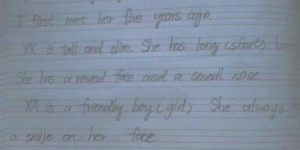 I first met her five years age.
XX is tall and slim. She has long (short)
She has a round face and a small nose.
XX is a friendly boy (girl), She always
a smile on her face